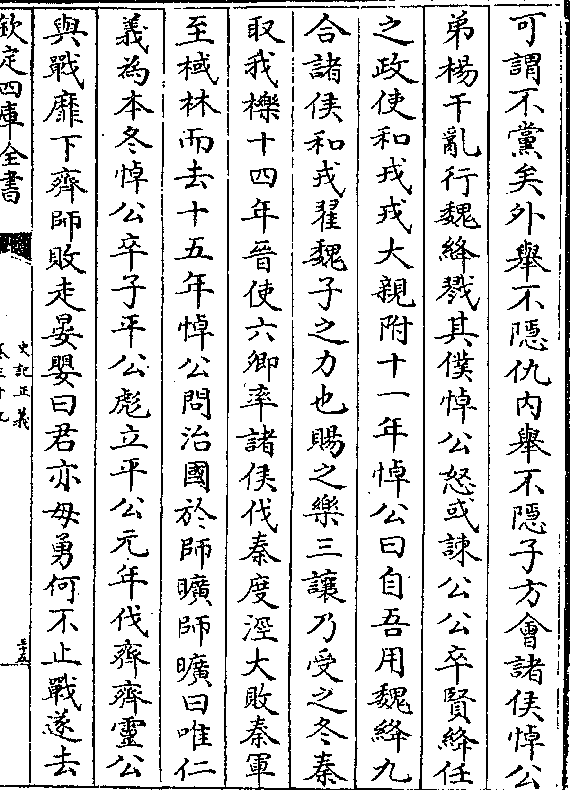 可謂不黨矣外舉不隱仇內舉不隱子方會諸侯悼公
弟楊干亂行魏絳戮其僕悼公怒或諫公公卒賢絳任
之政使和戎戎大親附十一年悼公曰自吾用魏絳九
合諸侯和戎翟魏子之力也賜之樂三讓乃受之冬秦
取我櫟十四年晉使六卿率諸侯伐秦度涇大敗秦軍
至棫林而去十五年悼公問治國於師曠師曠曰唯仁
義為本冬悼公卒子平公彪立平公元年伐齊齊靈公
與戰靡下齊師敗走晏嬰曰君亦毋勇何不止戰遂去
欽定四庫全書
史記正義
卷三十九
三十五